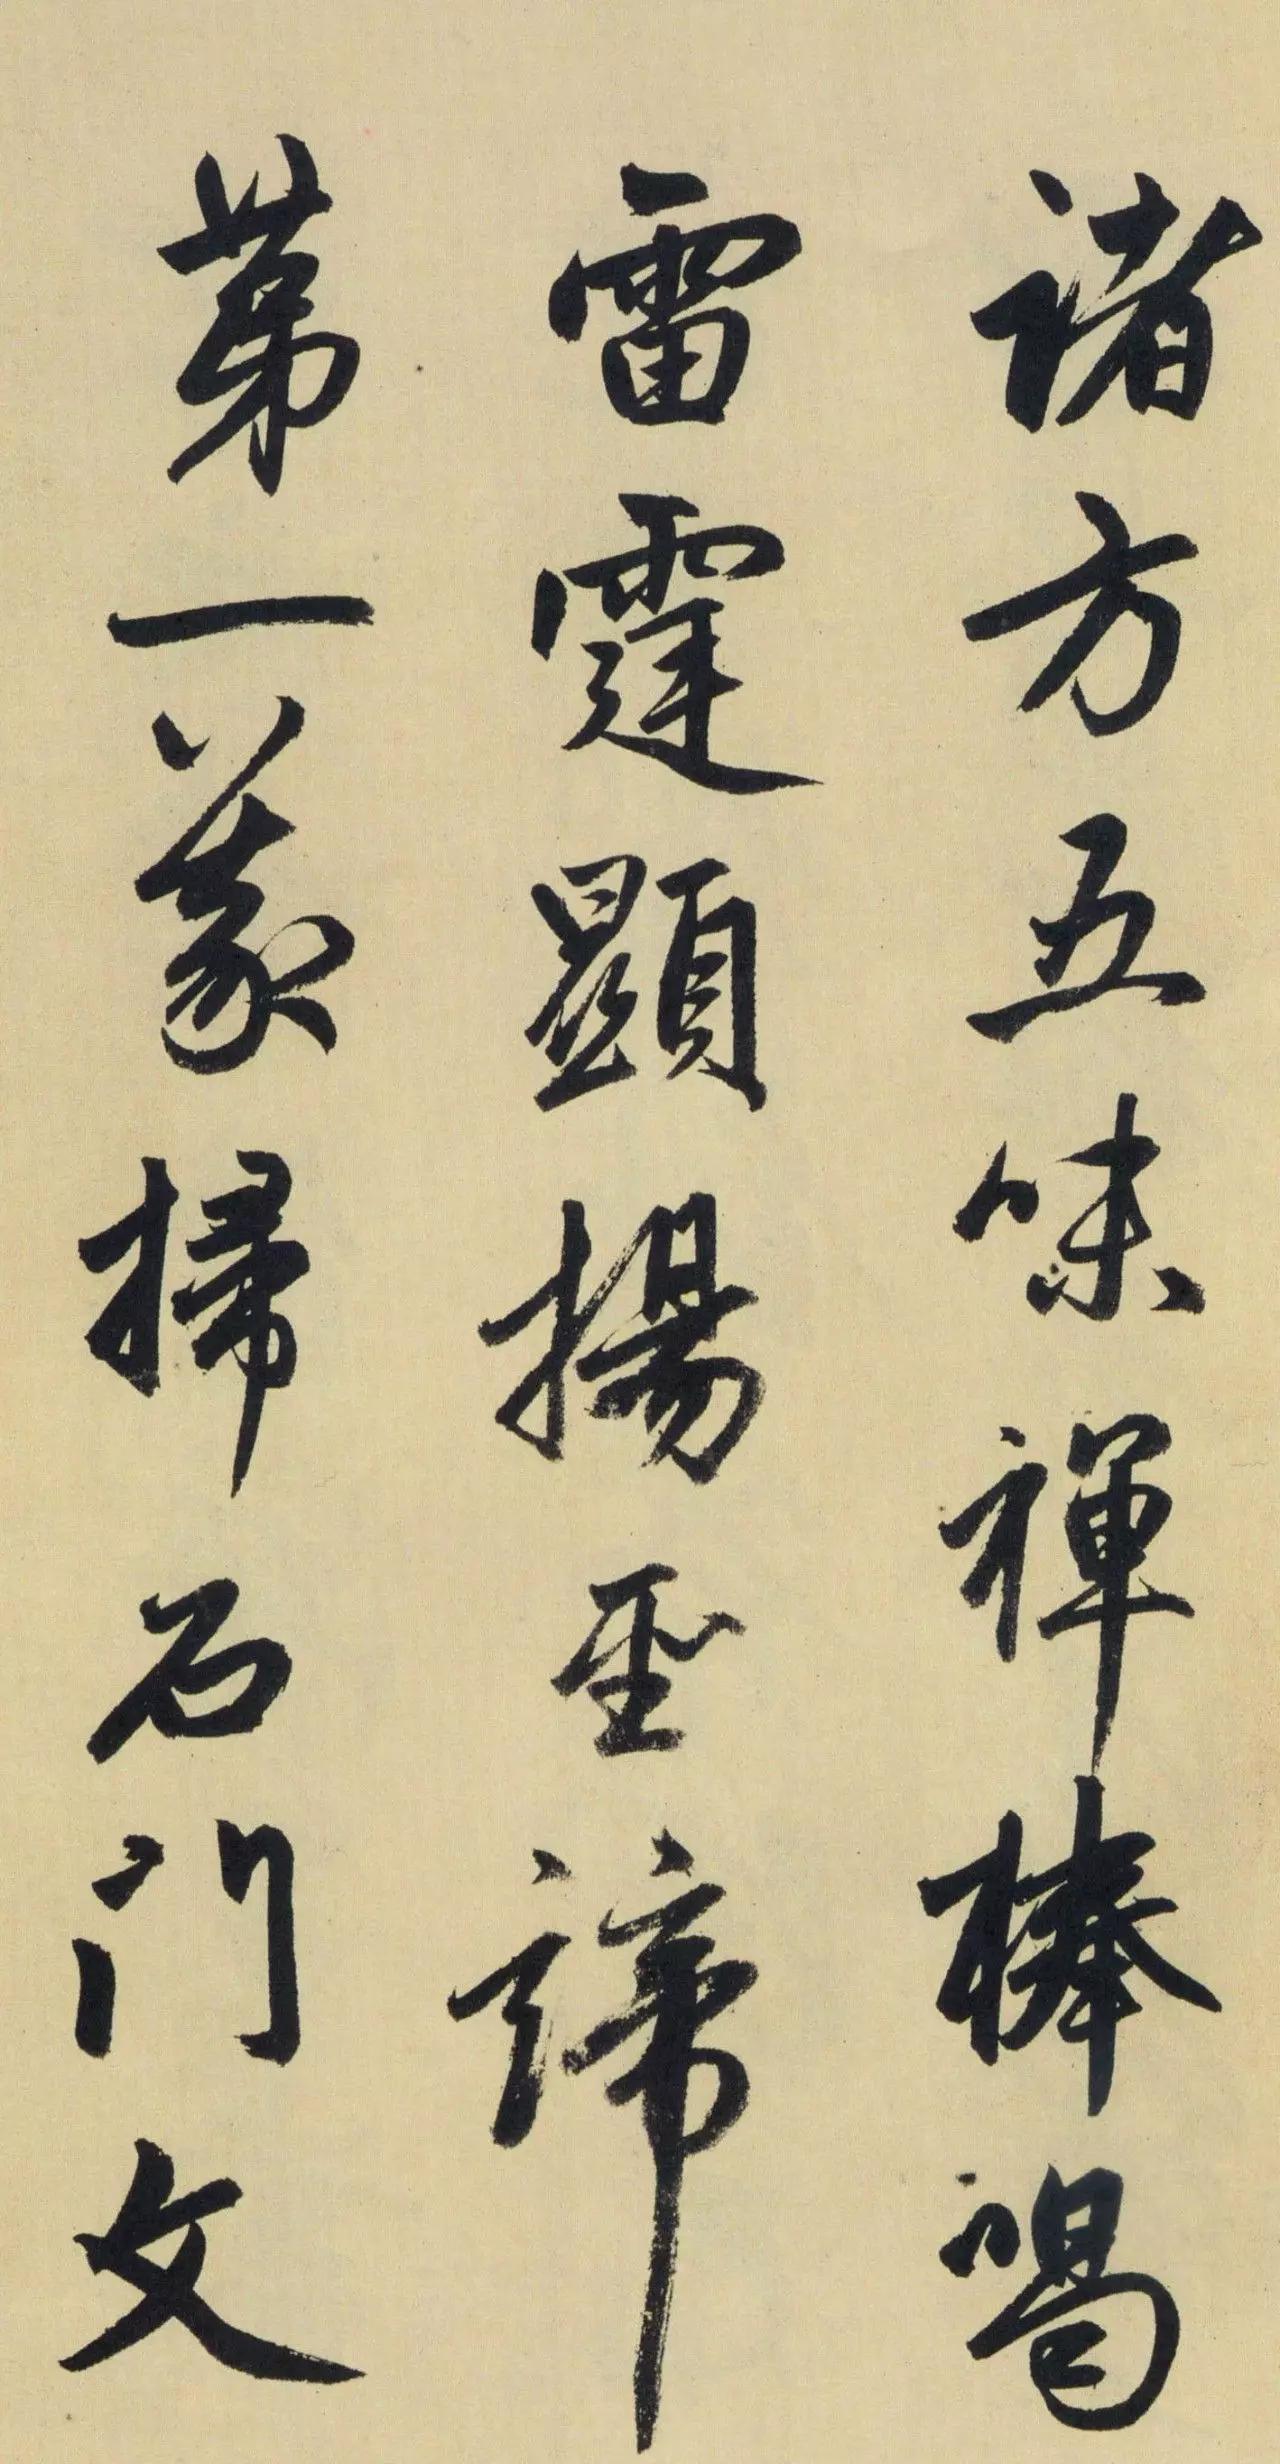 諸方五味禪棒喝
雷霆顯揚聖諦
第一義掃石門文